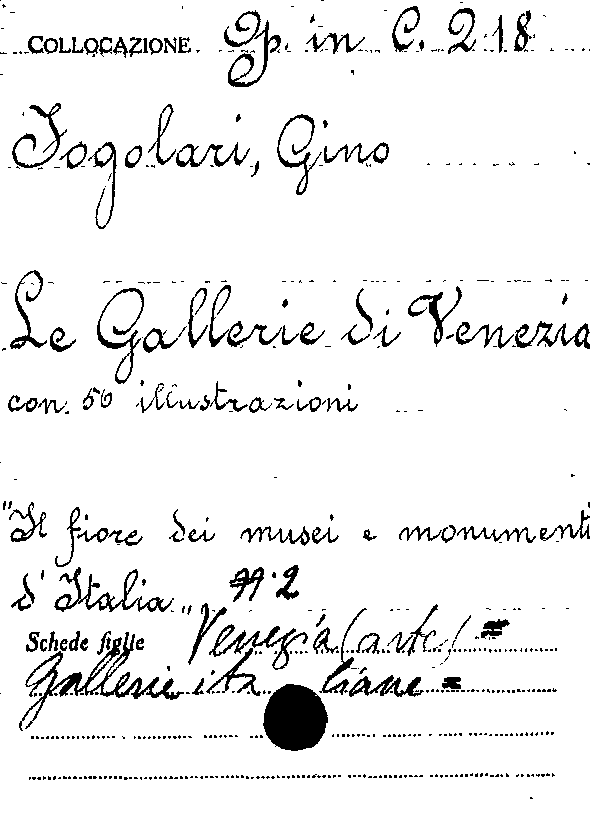 COLLOCAZIONE Op. in C. 218
Fogolari, Gino
Le Gallerie di Venezia
con 56 illustrazioni
"Il fiore dei musei e monumenti
d'Italia„ N. 2
Schede figlie Venezia (arte) =
Gallerie italiane =